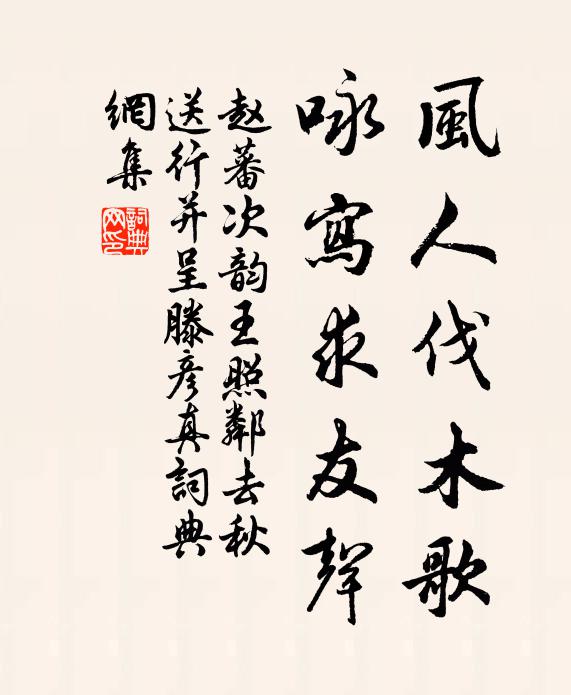 風人伐木歌
咏寫求友聲
赵蕃次韵王照鄰去秋
送行并呈滕彦真詞典
網集
詞典网印